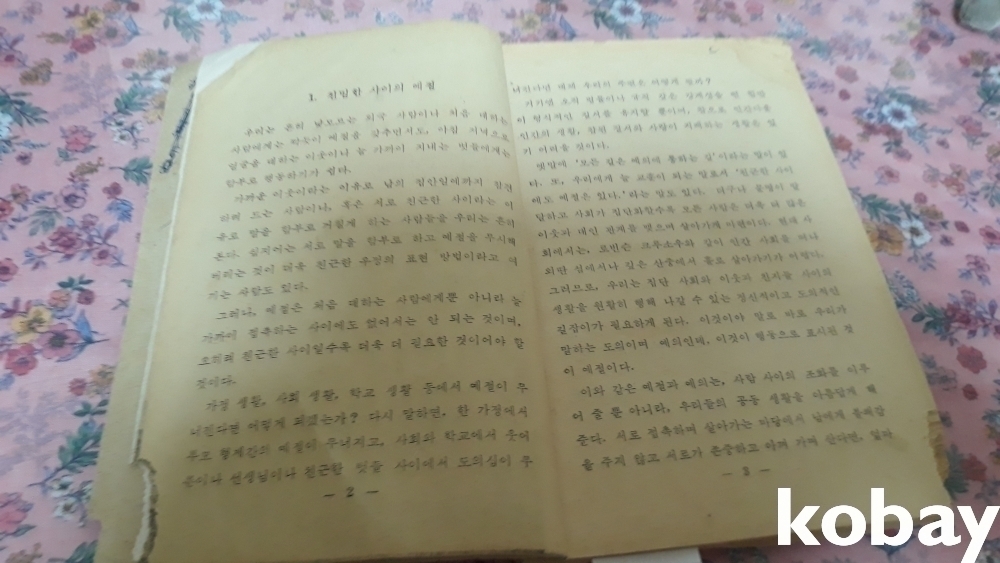 1. 친밀한 사이의 예절
우리는 흔히 외국 사람이나 처음 대하는
사람에게는 깍듯이 예절을 갖추면서도, 아침 저녁으로
얼굴을 대하는 이웃이나 늘 가까이 지내는 벗들에게는
함부로 행동하기가 쉽다.
가까운 이웃이라는 이유로 남의 집안일에까지 참견
하려 드는 사람이나, 혹은 서로 친근한 사이라는 이
유로 말을 함부로 거칠게 하는 사람들을 우리는 흔히
본다. 심지어는 서로 말을 함부로 하고 예절을 무시해
버리는 것이 더욱 친근한 우정의 표현 방법이라고 여
기는 사람도 있다.
그러나, 예절은 처음 대하는 사람에게뿐 아니라 늘
가까이 접촉하는 사이에도 없어서는 안 되는 것이며,
오히려 친근한 사이일수록 더욱 더 필요한 것이어야 할
것이다.
가정 생활, 사회 생활, 학교 생활 등에서 예절이 무
너진다면 어떻게 되겠는가? 다시 말하면, 한 가정에서
부모 형제간의 예절이 무너지고, 사회와 학교에서 웃어
른이나 선생님이나 친근한 벗들 사이에서 도의심이 무
— 2 —
너진다면 대체 우리의 주변은 어떻게 될까?
이 형식적인 질서를 유지할 뿐이며, 참으로 인간다운
인간의 생활, 참된 질서와 사랑이 지배하는 생활은 있
기 어려울 것이다.
옛말에 '모든 길은 예의에 통하는 길'이라는 말이 있
다. 또, 우리에게 늘 교훈이 되는 말로서 '친근한 사이
에도 예절은 있다.'라는 말도 있다. 더구나 문명이 발
달하고 사회가 집단화할수록 모든 사람은 더욱 더 많은
이웃과 대인 관계를 맺으며 살아가게 마련이다. 현대 사
회에서는, 로빈슨 크루소우와 같이 인간 사회를 떠나
외딴 섬에서나 깊은 산중에서 홀로 살아가기가 어렵다.
그러므로, 우리는 집단 사회와 이웃과 친지들 사이의
생활을 원활히 행해 나갈 수 있는 정신적이고 도의적인
길잡이가 필요하게 된다. 이것이야 말로 바로 우리가
말하는 도의이며 예의인데, 이것이 행동으로 표시된 것
이 예절이다.
이와 같은 예절과 예의는, 사람 사이의 조화를 이루
어 줄 뿐 아니라, 우리들의 공동 생활을 아름답게 해
준다. 서로 접촉하며 살아가는 마당에서 남에게 불쾌감
을 주지 않고 서로가 존중하고 아껴 가며 산다면, 얼마
— 3 —
kobay